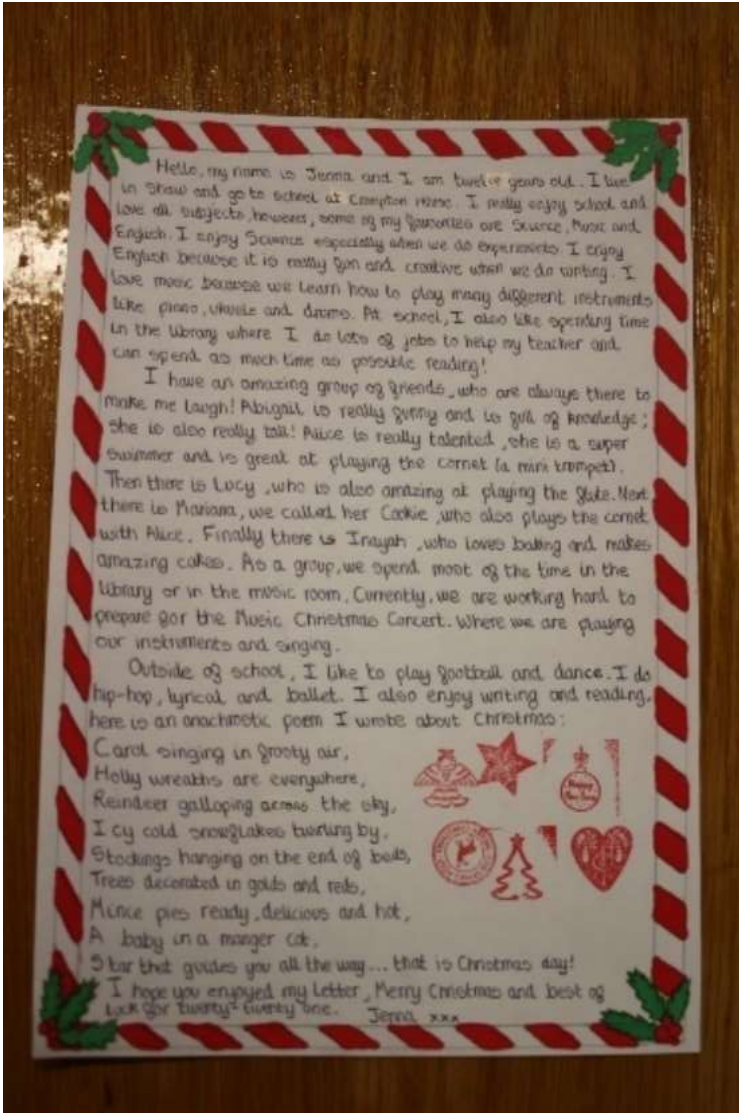 Hello, my name is Jenna and I am twelve years old. I live
in Shaw and go to school at Crompton House. I really enjoy school and
love all subjects, however, some of my favourites are Science, Music and
English. I enjoy Science especially when we do experiments. I enjoy
English because it is really fun and creative when we do writing. I
love music because we learn how to play many different instruments
like piano, ukulele and drums. At school, I also like spending time
in the library where I do lots of jobs to help my teacher and
can spend as much time as possible reading!
I have an amazing group of friends, who are always there to
make me laugh! Abigail is really funny and is full of knowledge;
she is also really tall! Alice is really talented, she is a super
swimmer and is great at playing the cornet (a mini trumpet).
Then there is Lucy, who is also amazing at playing the flute. Next
there is Mariana, we called her Cookie, who also plays the cornet
with Alice. Finally there is Inayah, who loves baking and makes
amazing cakes. As a group, we spend most of the time in the
library or in the music room. Currently, we are working hard to
prepare for the Music Christmas Concert. Where we are playing
our instruments and singing.
Outside of school, I like to play football and dance. I do
hip-hop, lyrical and ballet. I also enjoy writing and reading,
here is an anachrostic poem I wrote about Christmas:
Carol singing in frosty air,
Holly wreaths are everywhere,
Reindeer galloping across the sky,
Icy cold snowflakes twirling by,
Stockings hanging on the end of beds,
Trees decorated in golds and reds,
Mince pies ready, delicious and hot,
A baby in a manger cot,
Star that guides you all the way... that is Christmas day!
I hope you enjoyed my letter, Merry Christmas and best of
luck for twenty-twenty one. Jenna xxx